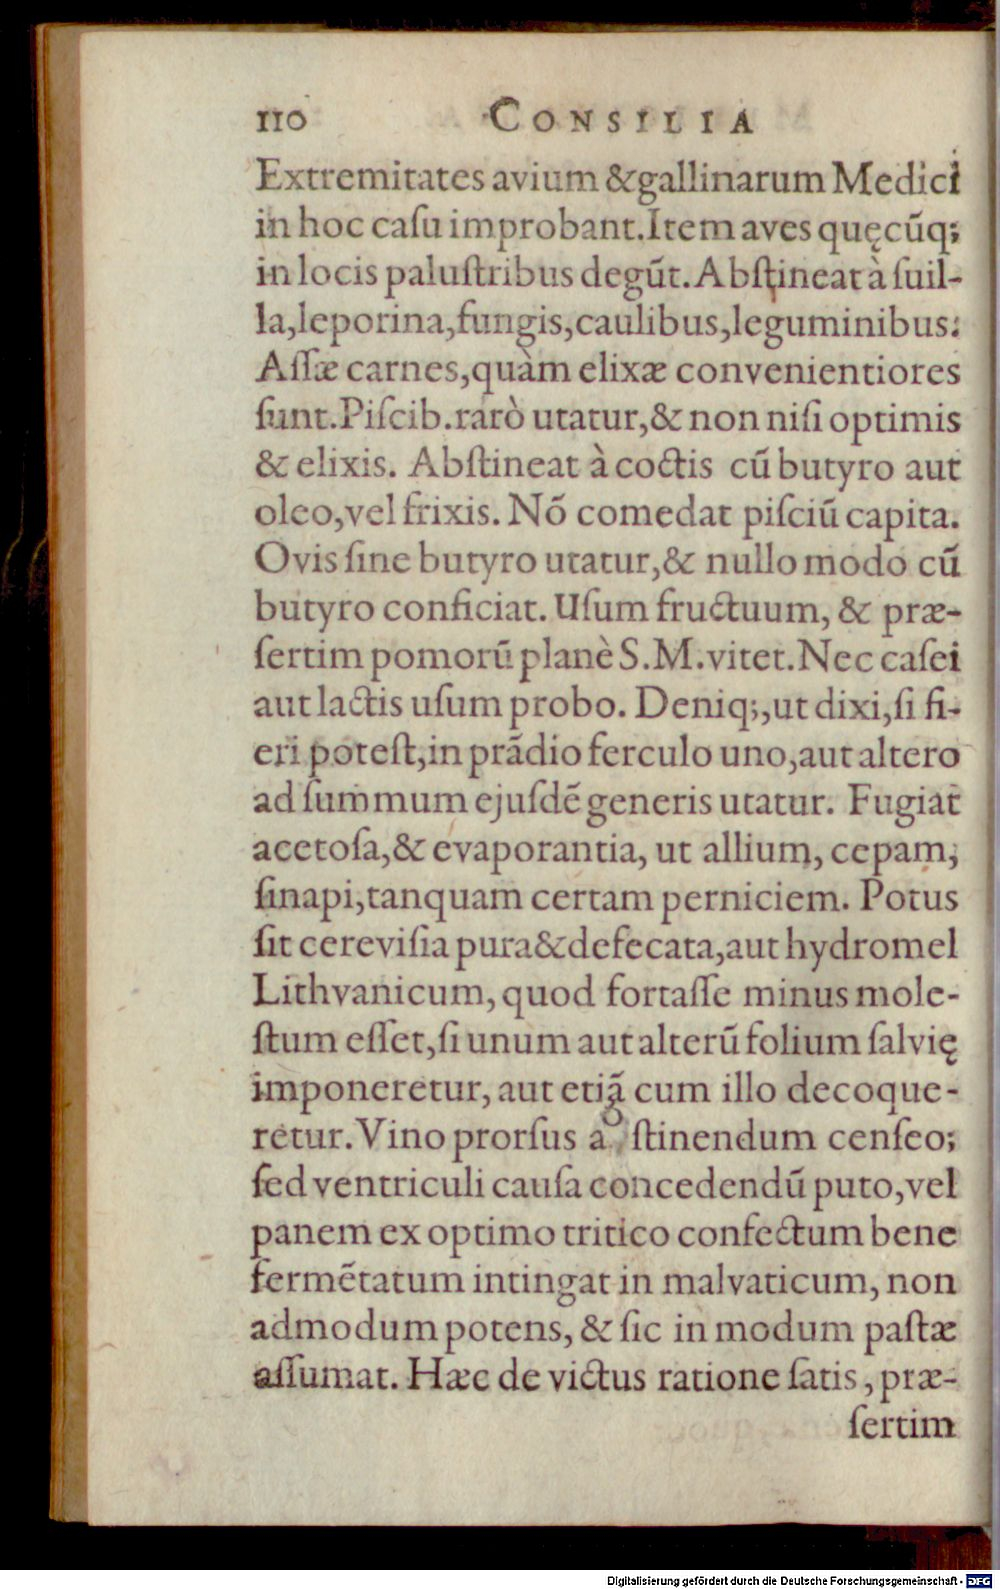 110 CONSILIA
Extremitates avium &gallinarum Medici
in hoc caſu improbant. Item aves quęcũq;
in locis paluſtribus degũt. Abſtineat à ſuil-
la, leporina, fungis, caulibus, leguminibus.
Aſſæ carnes, quàm elixæ convenientiores
ſunt. Piſcib. rarò utatur, & non niſi optimis
& elixis. Abſtineat à coctis cũ butyro aut
oleo, vel frixis. Nõ comedat piſciũ capita.
Ovis ſine butyro utatur, & nullo modo cũ
butyro conficiat. Uſum fructuum, & præ-
ſertim pomorũ planè S. M. vitet. Nec caſei
aut lactis uſum probo. Deniq;, ut dixi, ſi fi-
eri poteſt, in prãdio ferculo uno, aut altero
ad ſummum ejuſdẽ generis utatur. Fugiat
acetoſa, & evaporantia, ut allium, cepam,
ſinapi, tanquam certam perniciem. Potus
ſit cereviſia pura &defecata, aut hydromel
Lithvanicum, quod fortaſſe minus mole-
ſtum eſſet, ſi unum aut alterũ folium ſalvię
imponeretur, aut etiã cum illo decoque-
retur. Vino prorſus a ſtinendum cenſeo;
ſed ventriculi cauſa concedendũ puto, vel
panem ex optimo tritico confectum bene
fermẽtatum intingat in malvaticum, non
admodum potens, & ſic in modum paſtæ
aſſumat. Hæc de victus ratione ſatis, præ-
ſertim
Digitalisierung gefördert durch die Deutsche Forschungsgemeinschaft - DFG